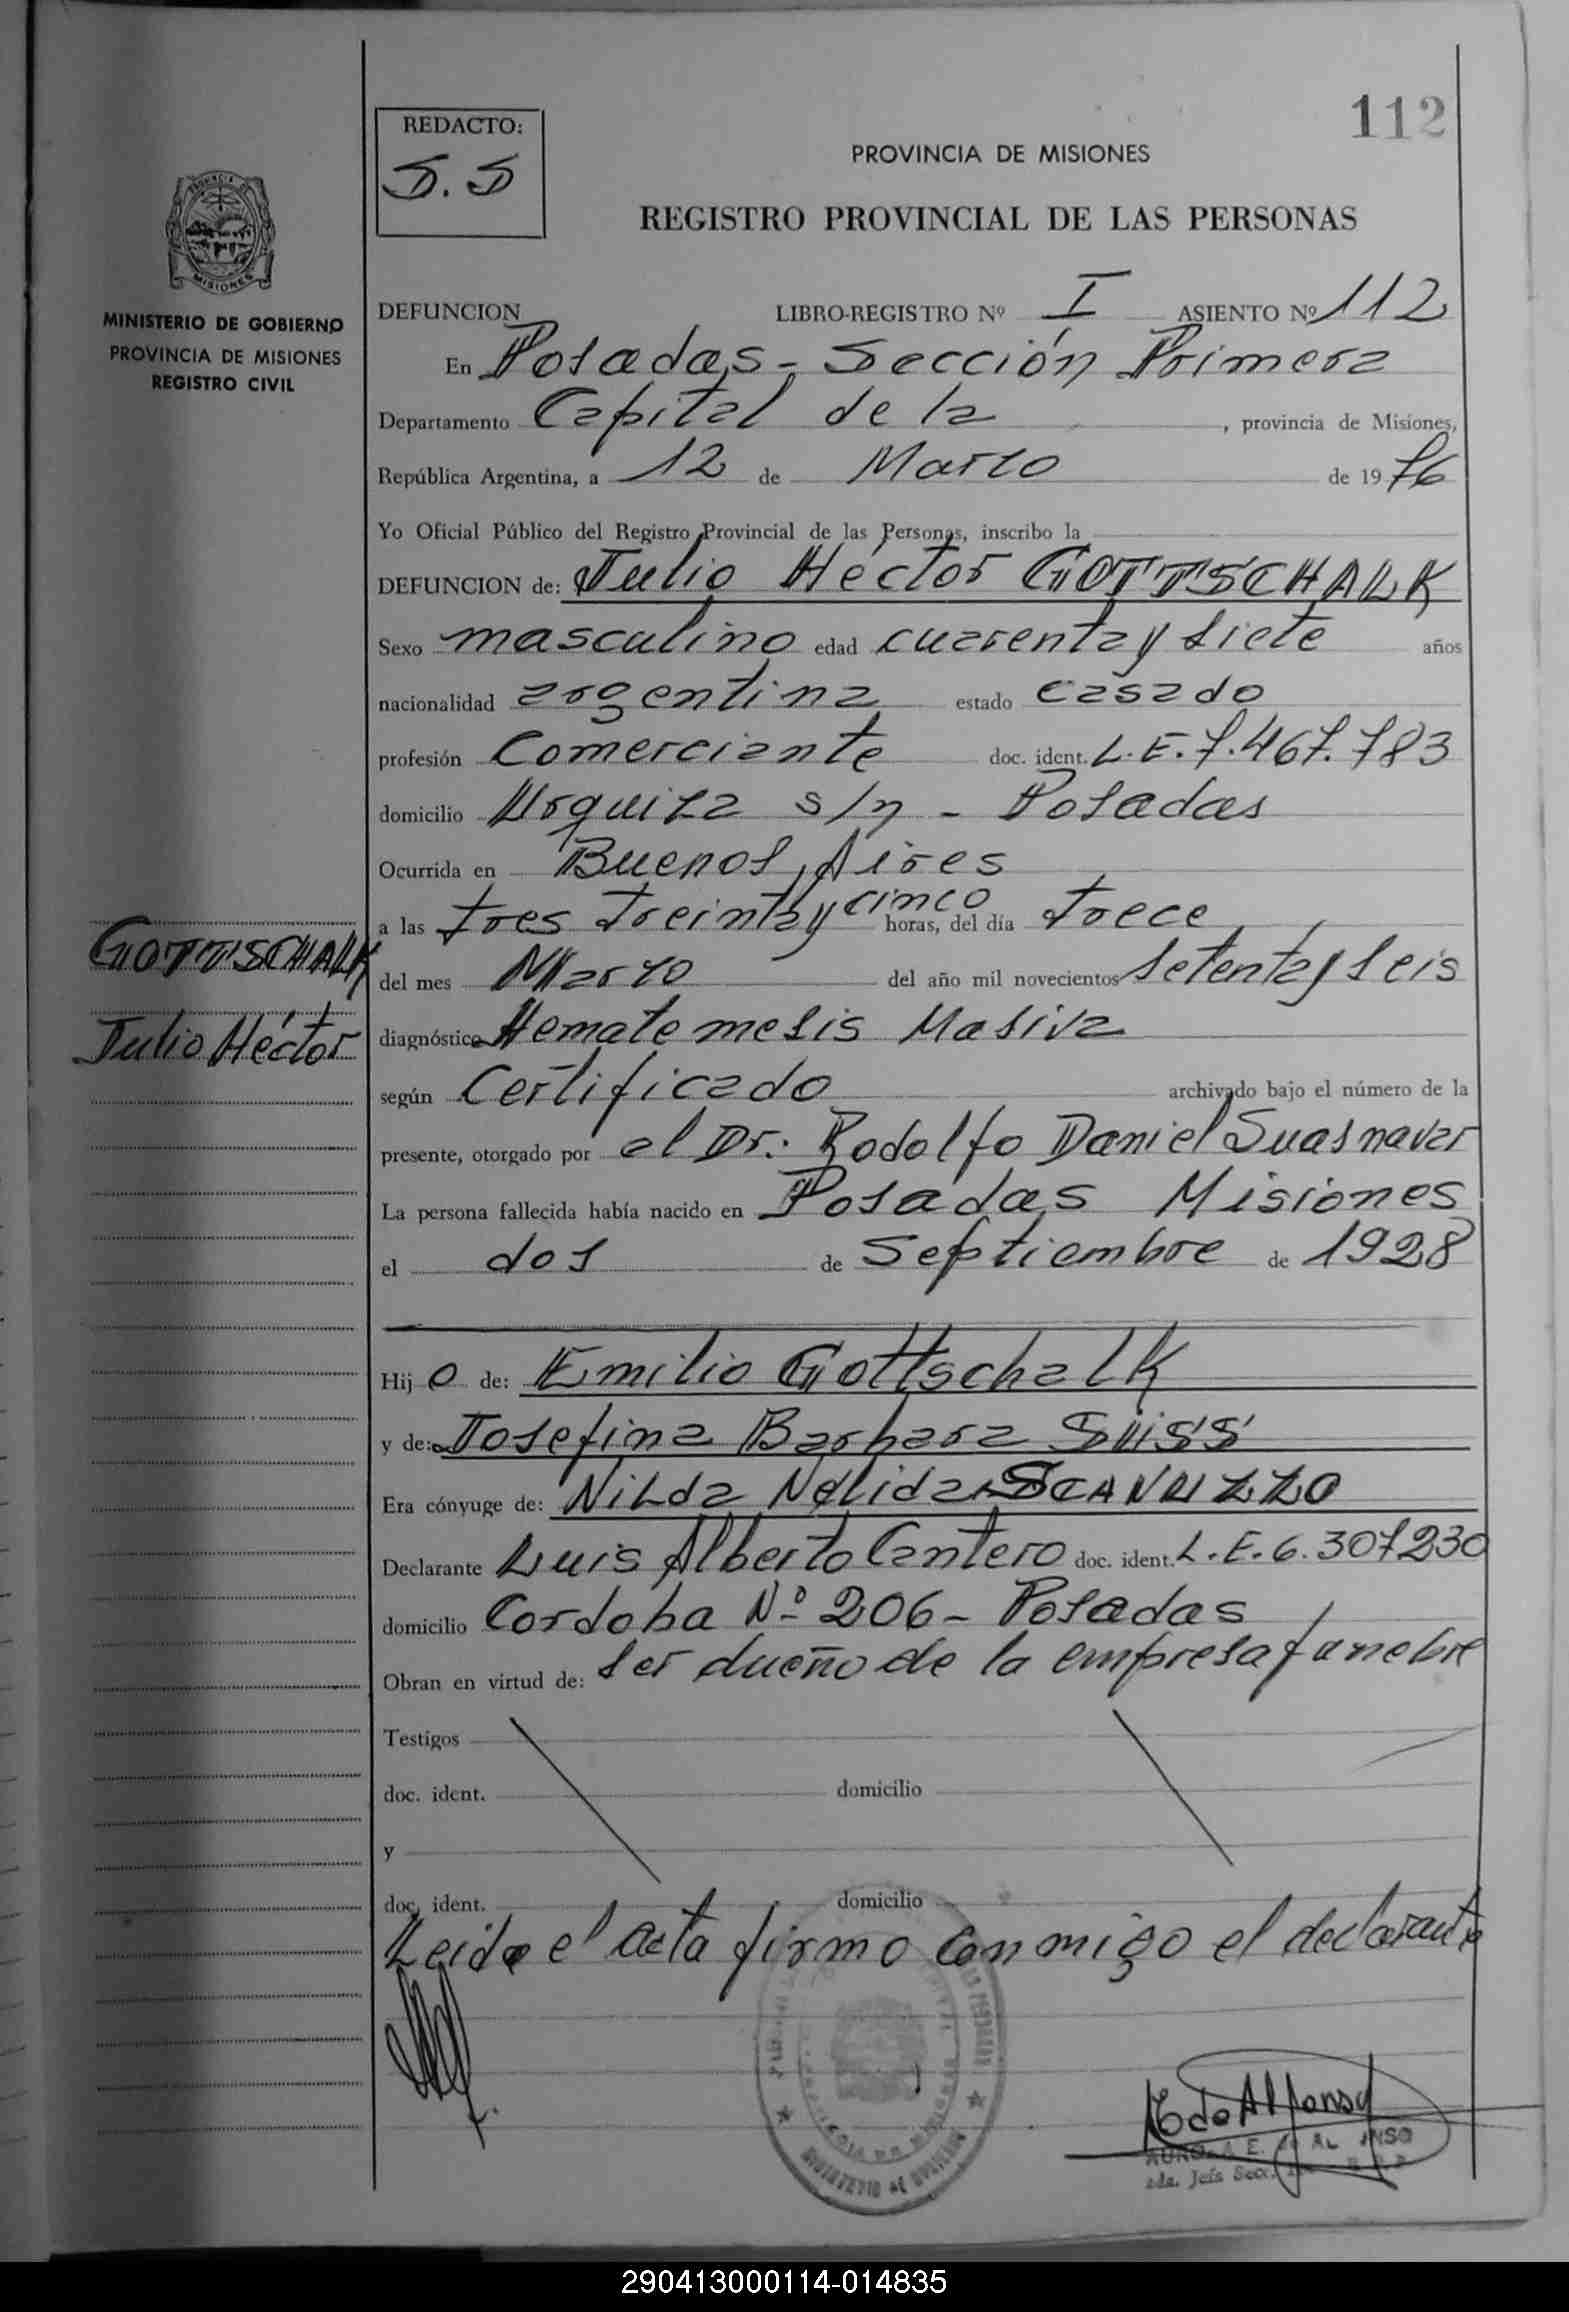 112
REDACTO:
S.S
PROVINCIA DE MISIONES
REGISTRO PROVINCIAL DE LAS PERSONAS
PROVINCIA DE
MISIONES
MINISTERIO DE GOBIERNO
PROVINCIA DE MISIONES
REGISTRO CIVIL
DEFUNCION LIBRO-REGISTRO Nº I ASIENTO Nº 112
En Posadas - Sección Primera
Departamento Capital de la , provincia de Misiones,
República Argentina, a 12 de Marzo de 1976
Yo Oficial Público del Registro Provincial de las Personas, inscribo la
DEFUNCION de: Julio Héctor GOTTSCHALK
Sexo masculino edad cuarenta y siete años
nacionalidad argentina estado casado
profesión Comerciante doc. ident. L.E. 7.467.783
domicilio Urquiza s/n - Posadas
Ocurrida en Buenos Aires
a las tres treinta y cinco horas, del día trece
del mes Marzo del año mil novecientos setenta y seis
diagnóstico Hematemesis Masiva
según Certificado archivado bajo el número de la
presente, otorgado por el Dr. Rodolfo Daniel Suasnavar
La persona fallecida había nacido en Posadas Misiones
el dos de Septiembre de 1928
GOTTSCHALK
Julio Héctor
Hijo de: Emilio Gottschalk
y de: Josefina Barbara SÜSS
Era cónyuge de: Nilda Nélida SCANUZZO
Declarante Luis Alberto Cantero doc. ident. L.E. 6.307230
domicilio Cordoba Nº 206 - Posadas
Obran en virtud de: ser dueño de la empresa funebre
Testigos
doc. ident. domicilio
y
doc. ident. domicilio
Leida el acta firmo conmigo el declarante
E. de AL
290413000114-014835